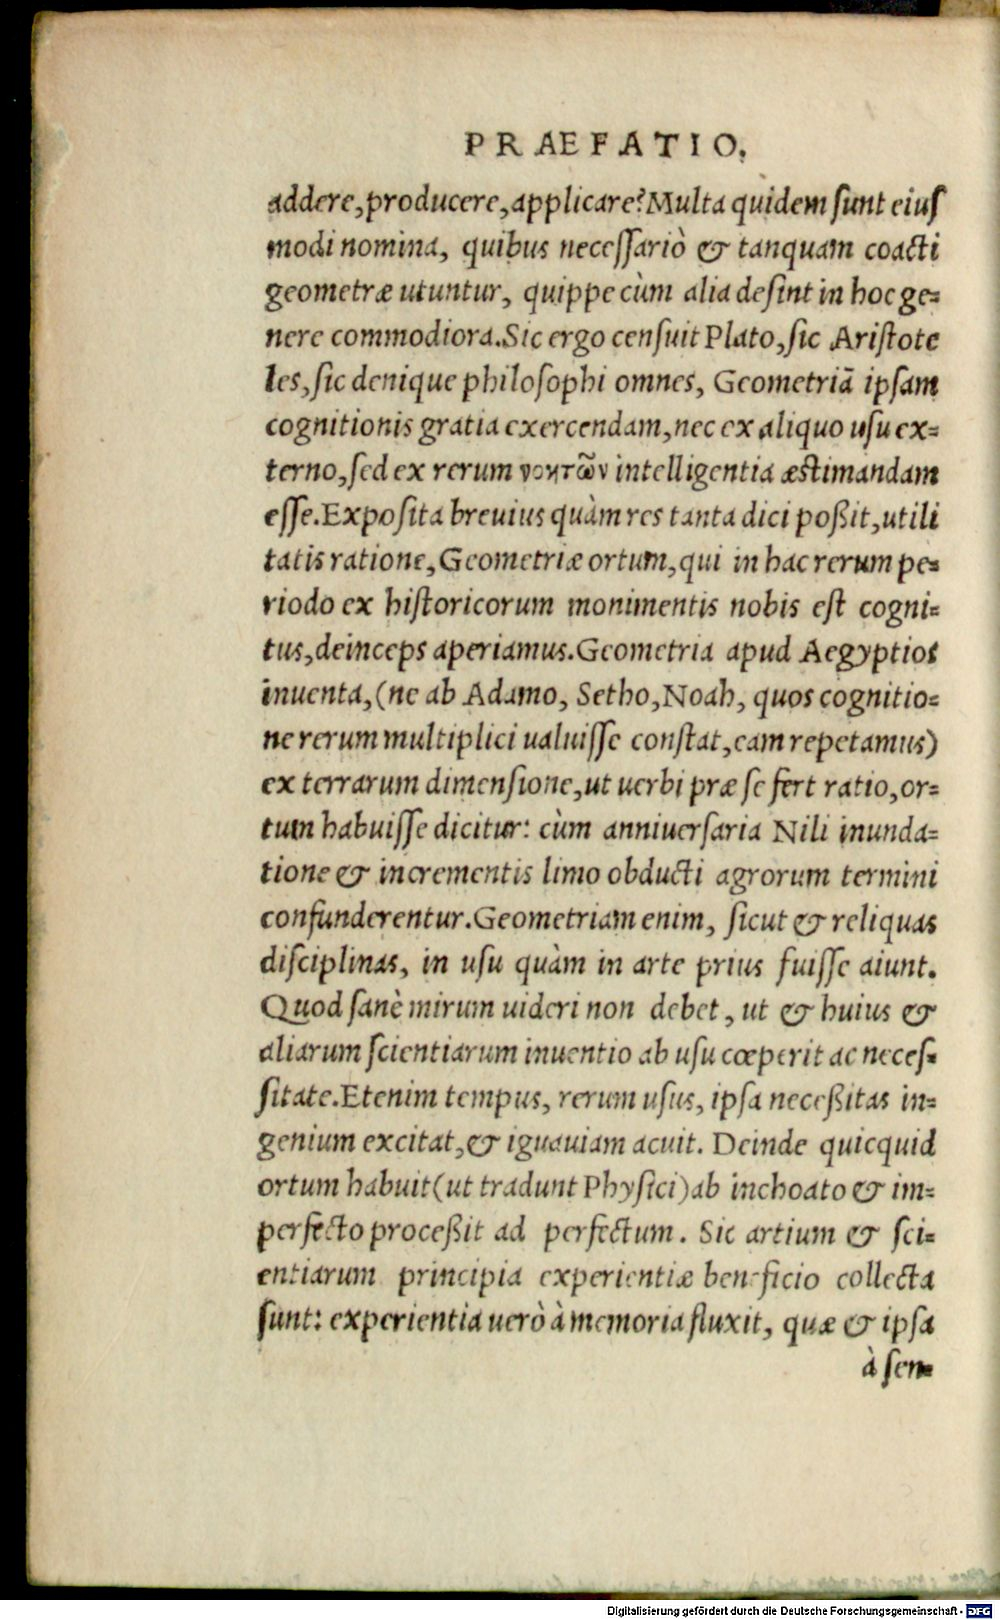 PRAEFATIO.
addere, producere, applicare? Multa quidem sunt eius
modi nomina, quibus necessariò & tanquam coacti
geometræ utuntur, quippe cùm alia desint in hoc ge=
nere commodiora. Sic ergo censuit Plato, sic Aristote
les, sic denique philosophi omnes, Geometriā ipsam
cognitionis gratia exercendam, nec ex aliquo usu ex=
terno, sed ex rerum νοητῶν intelligentia æstimandam
esse. Exposita breuius quàm res tanta dici poßit, utili
tatis ratione, Geometriæ ortum, qui in hac rerum pe=
riodo ex historicorum monimentis nobis est cogni=
tus, deinceps aperiamus. Geometria apud Aegyptios
inuenta, (ne ab Adamo, Setho, Noah, quos cognitio=
ne rerum multiplici ualuisse constat, eam repetamus)
ex terrarum dimensione, ut uerbi præ se fert ratio, or=
tum habuisse dicitur: cùm anniuersaria Nili inunda=
tione & incrementis limo obducti agrorum termini
confunderentur. Geometriam enim, sicut & reliquas
disciplinas, in usu quàm in arte prius fuisse aiunt.
Quod sanè mirum uideri non debet, ut & huius &
aliarum scientiarum inuentio ab usu cœperit ac neces=
sitate. Etenim tempus, rerum usus, ipsa neceßitas in=
genium excitat, & ignauiam acuit. Deinde quicquid
ortum habuit (ut tradunt Physici) ab inchoato & im=
perfecto proceßit ad perfectum. Sic artium & sci=
entiarum principia experientiæ beneficio collecta
sunt: experientia uerò à memoria fluxit, quæ & ipsa
à sen=
Digitalisierung gefördert durch die Deutsche Forschungsgemeinschaft - DFG